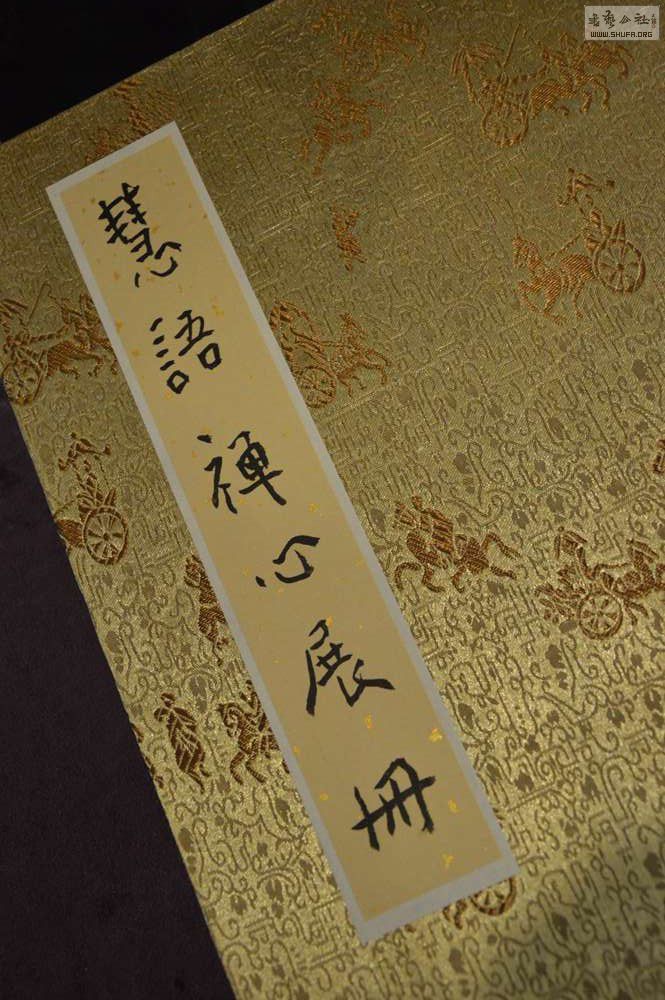 慧語禪心展冊
書藝公社
WWW.SHUFA.ORG